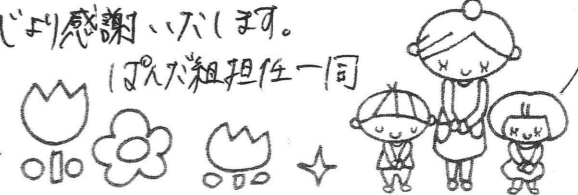 じより感謝いたします。
ぱんだ組担任一同